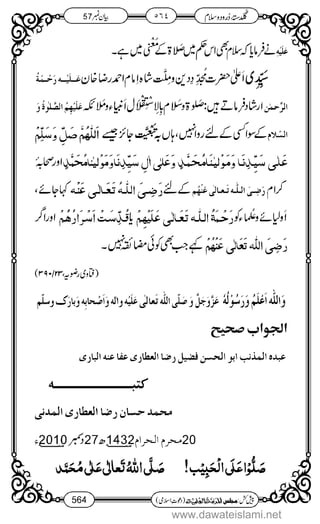 گلدستۂ درود و سلام ٥٦٤ بیان نمبر 57
عَلَیْہِ نے فرمایا کہ سلام بھی اس حکم میں صلاۃ کے معنٰی میں ہے۔
سیّدی اعلیٰ حضرت مُجدِّدِ دین و ملّت شاہ امام احمد رضا خان عَلَیْہِ رَحْمَۃُ
الرَّحمٰن ارشاد فرماتے ہیں: صلوٰۃ و سلام بِالاِسْتِقْلال انبیاء و ملائکہ عَلَیْہِمُ الصَّلٰوۃُ وَ
السَّلام کے سوا کسی کے لئے روا نہیں، ہاں بہ تَبْعِیَّت جائز جیسے اَللّٰھُمَّ صَلِّ وَسَلِّمْ
عَلٰی سَیِّدِنَا وَمَوْلٰینَا مُحَمَّدٍ وَّعَلٰی اٰلِ سَیِّدِنَا وَمَوْلٰینَا مُحَمَّدٍ اور صحابۂ
کرام رَضِیَ اللہُ تعالٰی عَنْہُم کے لئے رَضِیَ اللہُ تَعَالٰی عَنْہُ کہا جائے،
اولیاء و علماء کو رَحْمَۃُ اللہِ تَعَالٰی عَلَیْہِمْ یا قُدِّسَتْ اَسْرَارُھُمْ اور اگر
رَضِیَ اللہُ تَعَالٰی عَنْہُمْ کہے جب بھی کوئی مضایقہ نہیں۔
(فتاوی رضویہ، ۲۳/ ۳۹۰)
وَاللہُ اَعْلَمُ وَرَسُوْلُہٗ عَزَّوَجَلَّ وَ صَلَّی اللہُ تَعَالٰی عَلَیْہِ واٰلِہٖ وَاَصْحَابِہٖ وَبَارَکَ وسلَّم
الجواب صحیح
عبدہ المذنب ابو الحسن فضیل رضا العطاری عفا عنہ الباری
کتبــــــــــــــــــہ
محمد حسان رضا العطاری المدنی
20 محرم الحرام 1432ھ 27 دسمبر 2010ء
صَلُّوْا عَلَی الْحَبِیْب! صَلَّی اللہُ تَعَالٰی عَلٰی مُحَمَّد
564 پیش کش: مجلس (دعوتِ اسلامی)
www.dawateislami.net